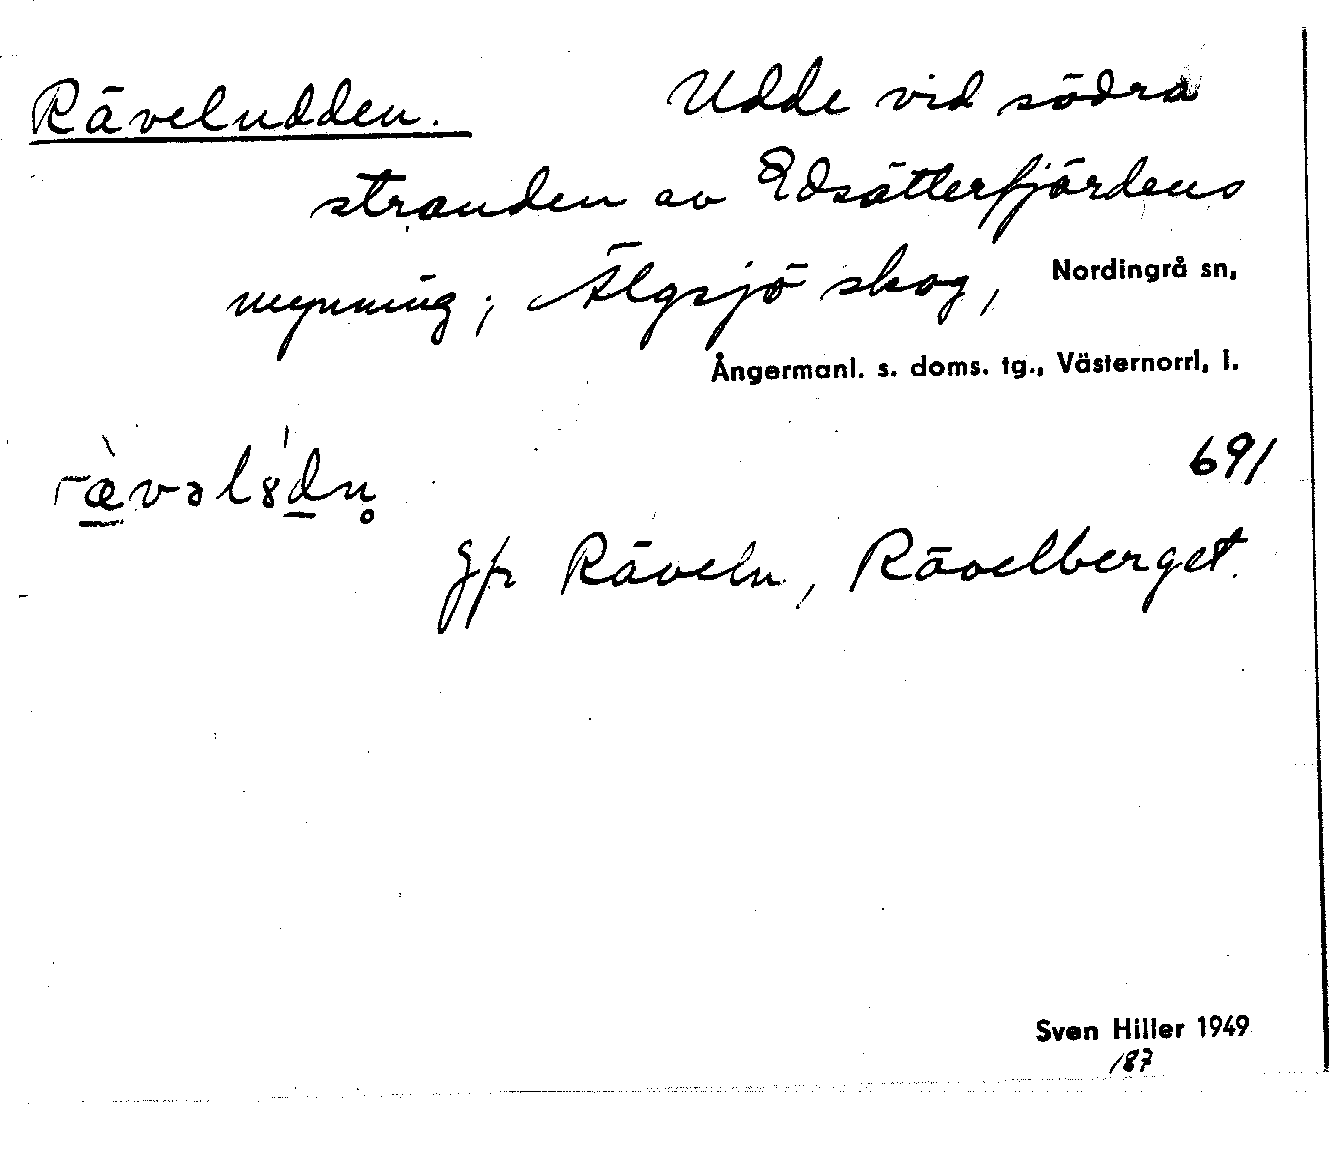 Räveludden. Udde vid södra
stranden av Edsätterfjärdens
mynning, Älgsjö skog, Nordingrå sn,
Ångermanl. s. doms. tg., Västernorrl. l.
691
Jfr Räveln, Rävelberget.
Sven Hiller 1949
187